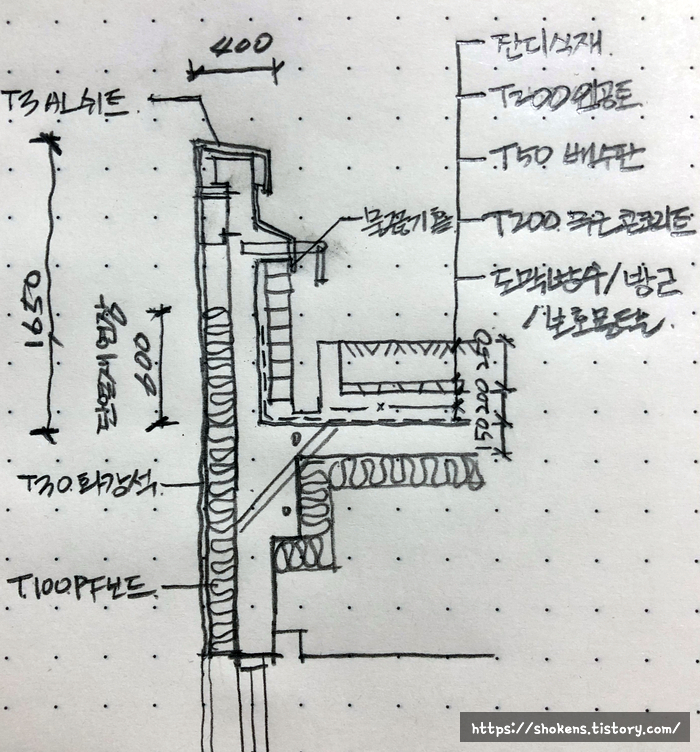 400
T3 AL쉬트
잔디식재
T200 인공토
T50 배수판
물끊기홈
T200. 무근콘크리트
도막방수/방근
/보호몰탈
1650
600
250
200
150
T30. 화강석
T100. PF보드
https://shokens.tistory.com/